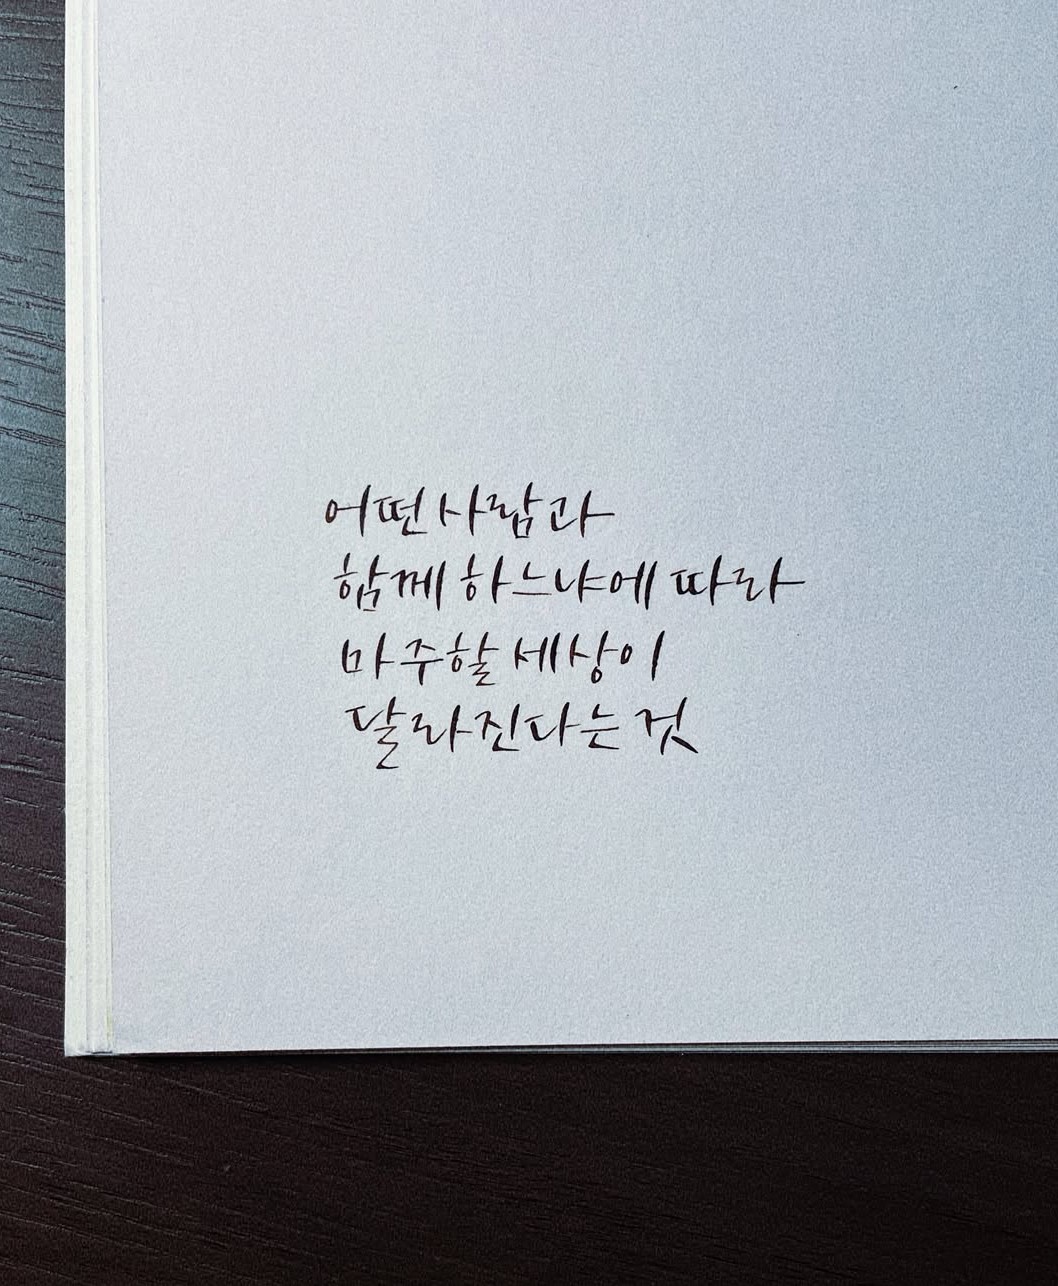 어떤 사람과
함께 하느냐에 따라
마주할 세상이
달라진다는 것